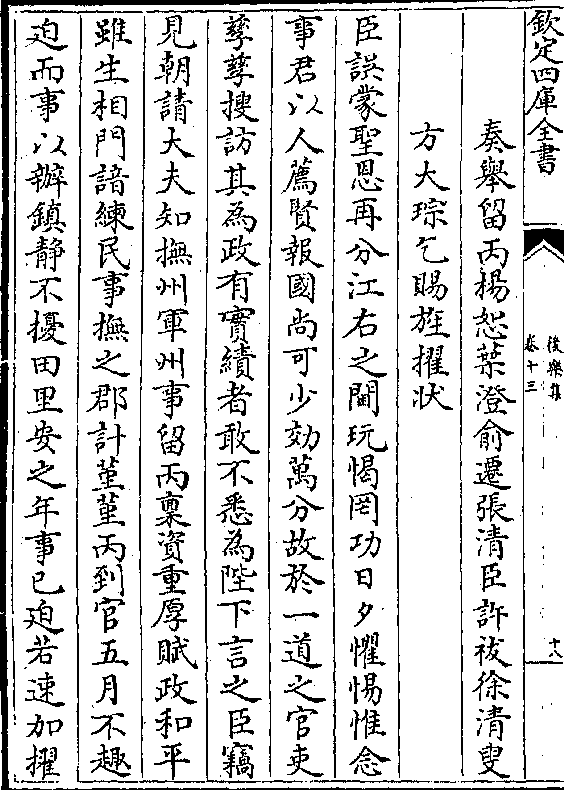 欽定四庫全書
後樂集
卷十三
十八
奏舉留丙楊恕葉澄俞遷張清臣許祓徐清叟
方大琮乞賜旌擢状
臣誤蒙聖恩再分江右之閫玩愒罔功日夕懼惕惟念
事君以人薦賢報國尚可少効萬分故於一道之官吏
孳孳搜訪其為政有實績者敢不悉為陛下言之臣竊
見朝請大夫知撫州軍州事留丙稟資重厚賦政和平
雖生相門諳練民事撫之郡計堇堇丙到官五月不趣
迫而事以辦鎮静不擾田里安之年事已迫若速加擢